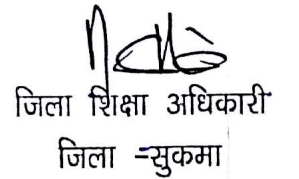 जिला शिक्षा अधिकारी
जिला -सुकमा